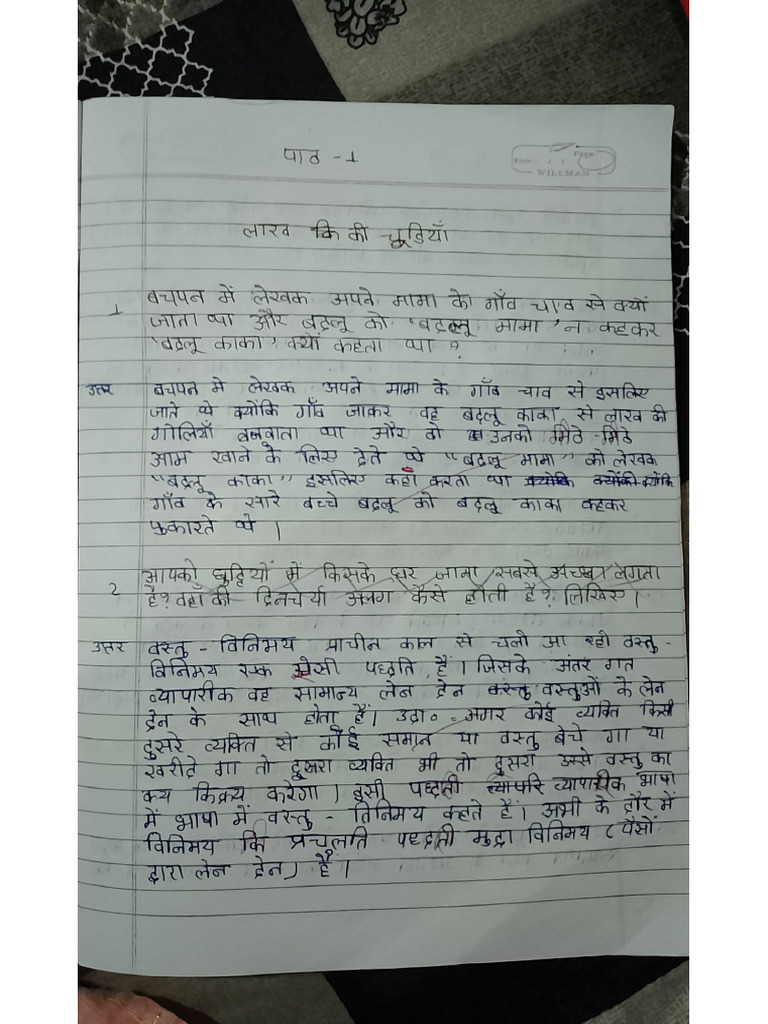 पाठ - 1
Date: / / Page
WILLMAN
लाख कि की चूड़ियाँ
1 बचपन में लेखक अपने मामा के गाँव चाव से क्यों
जाता था और बदलू को 'बदलू मामा' न कहकर
'बदलू काका' क्यों कहता था ?
उत्तर बचपन मे लेखक अपने मामा के गाँव चाव से इसलिए
जाते थे क्योंकि गाँव जाकर वह बदलू काका से लाख की
गोलियाँ बनवाता था और वो उनको मिठे-मिठे
आम खाने के लिए देते थे "बदलू मामा" को लेखक
"बदलू काका" इसलिए कहाँ करता था क्योंकि
गाँव के सारे बच्चे बदलू को बदलू काका कहकर
पुकारते थे ।
2 आपको छुट्टियों में किसके घर जाना सबसे अच्छा लगता
है? वहाँ की दिनचर्या अलग कैसे होती है? लिखिए ।
उत्तर वस्तु - विनिमय प्राचीन काल से चली आ रही वस्तु -
विनिमय एक ऐसी पध्दति है । जिसके अंतर गत
व्यापारीक वह सामान्य लेन देन वस्तु वस्तुओं के लेन
देन के साथ होता हैं । उदा० - अगर कोई व्यक्ति किसी
दुसरे व्यक्ति से कोई समान या वस्तु बेचे गा या
खरीदे गा तो दुसरा व्यक्ति भी तो दुसरा उस्से वस्तु का
क्य किक्रय करेगा । इसी पध्दती व्यापरि व्यापारीक भाषा
में भाषा में वस्तु - तिनिमय कहते हैं । अभी के दौर में
विनिमय कि प्रचलति पध्दती मुद्रा विनिमय ( पैसों
द्वारा लेन देन ) हैं ।